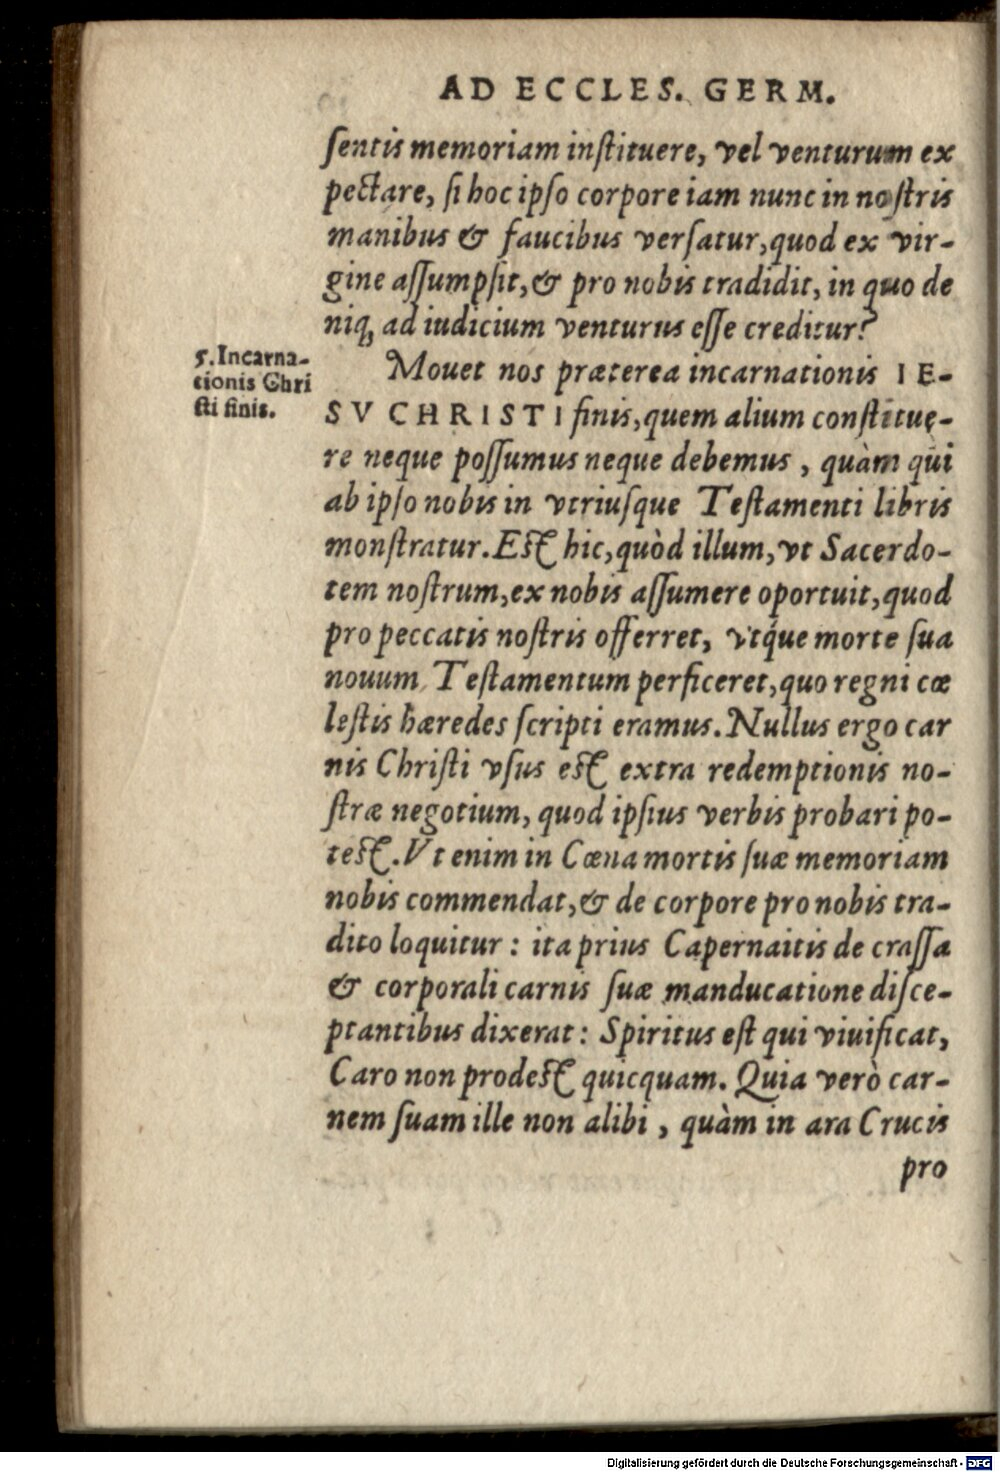 AD ECCLES. GERM.
ſentis memoriam inſtituere, vel venturum ex
pectare, ſi hoc ipſo corpore iam nunc in noſtris
manibus & faucibus verſatur, quod ex vir-
gine aſſumpſit, & pro nobis tradidit, in quo de
niq; ad iudicium venturus eſſe creditur?
5. Incarna-
tionis Chri
ſti finis.
Mouet nos præterea incarnationis IE-
SV CHRISTI finis, quem alium conſtitue-
re neque poſſumus neque debemus, quàm qui
ab ipſo nobis in vtriuſque Teſtamenti libris
monſtratur. Eſt hic, quòd illum, vt Sacerdo-
tem noſtrum, ex nobis aſſumere oportuit, quod
pro peccatis noſtris offerret, vtq́ue morte ſua
nouum Teſtamentum perficeret, quo regni cœ
leſtis hæredes ſcripti eramus. Nullus ergo car
nis Chriſti vſus eſt extra redemptionis no-
ſtræ negotium, quod ipſius verbis probari po-
teſt. Vt enim in Cœna mortis ſuæ memoriam
nobis commendat, & de corpore pro nobis tra-
dito loquitur: ita prius Capernaitis de craſſa
& corporali carnis ſuæ manducatione diſce-
ptantibus dixerat: Spiritus eſt qui viuificat,
Caro non prodeſt quicquam. Quia verò car-
nem ſuam ille non alibi, quàm in ara Crucis
pro
Digitalisierung gefördert durch die Deutsche Forschungsgemeinschaft - DFG